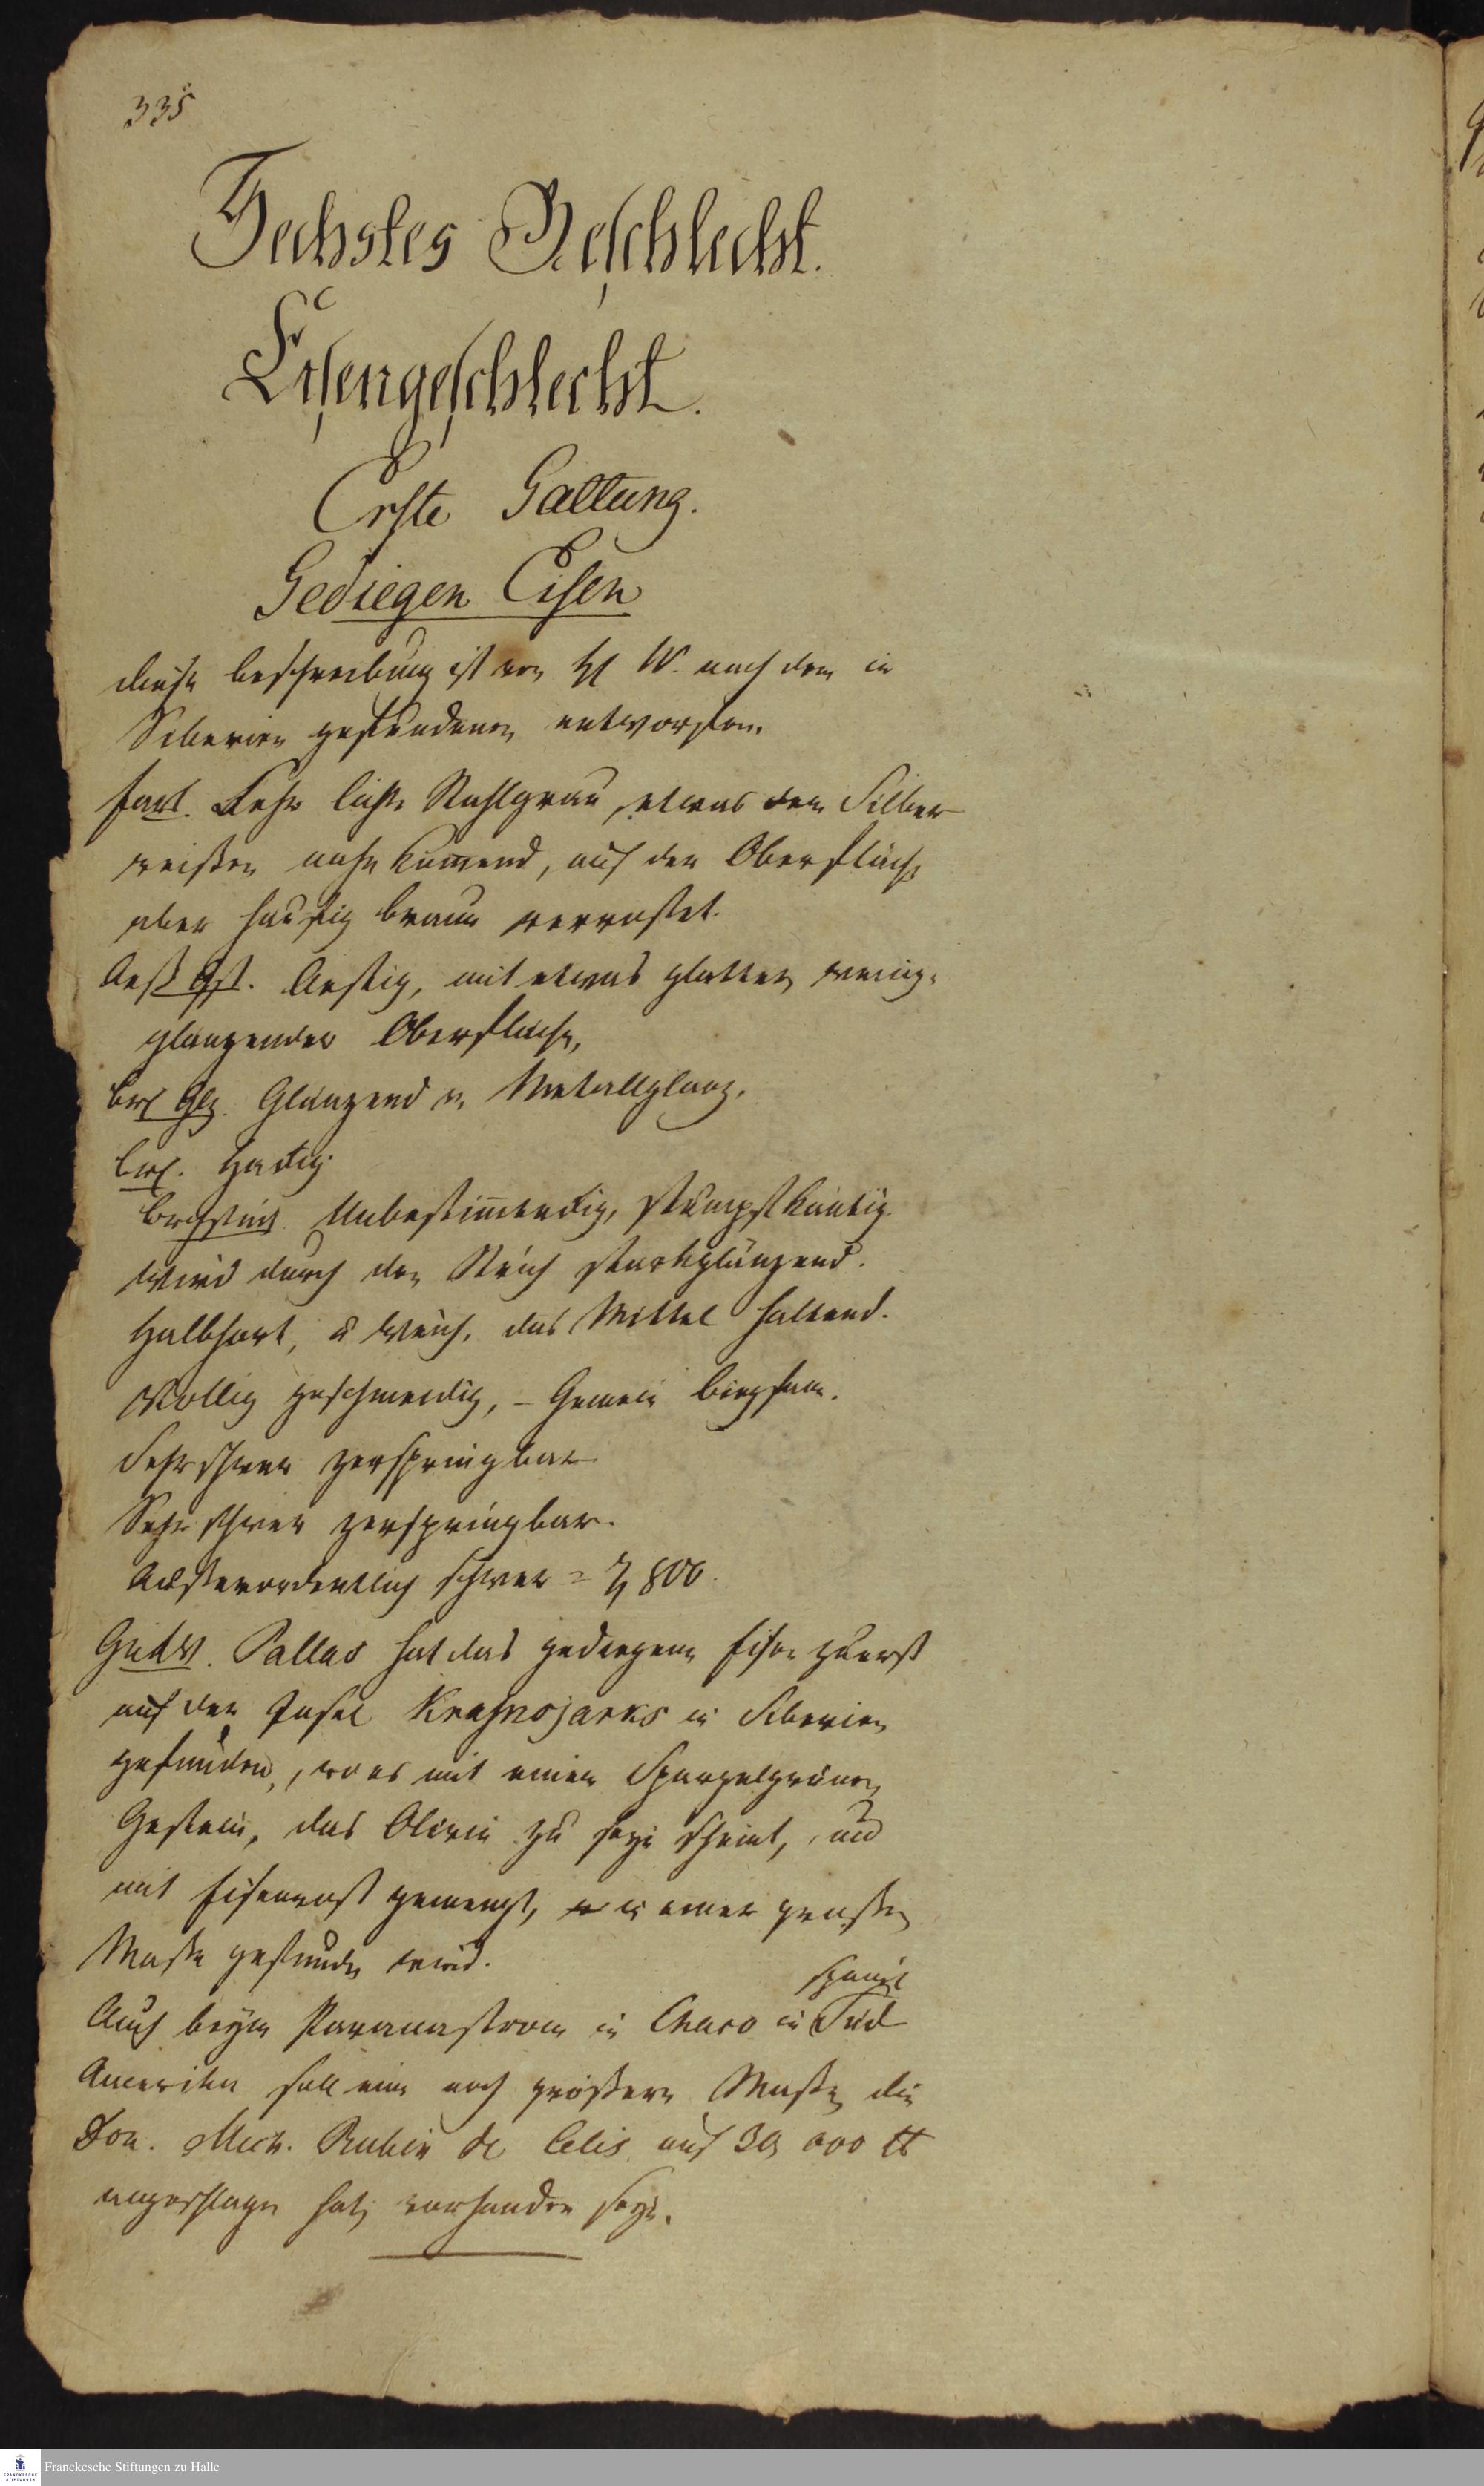 335
Sechstes Geschlecht.
Eisengeschlecht.
Erste Gattung.
Gediegen Eisen
diese Beschreibung ist von H W. nach dem in
Siberien gefundenen entworfen.
Farb. Sehr lichte Stahlgrau, etwas dem Silber
weißen nahe kommend, auf der Oberfläche
aber häufig braun verrostet.
Aeß Gst. Aestig, mit etwas glatter wenig-
glänzender Oberfläche,
Br Glz. Glänzend v. Metallglanz.
Br. Hackig
Brchstück Unbestimmteckig, stumpfkantig
Wird durch den Strich starkglänzend.
Halbhart, u Weich, das Mittel haltend.
Völlig geschmeidig, – Gemein biegsam.
Sehr schwer zerspringbar
Sehr schwer zerspringbar.
Außerordentlich schwer = 7,800.
Gebst. Pallas hat das gediegene Eisen zuerst
auf der Insel Krasnojarks in Siberien
gefunden, wo es mit einem Spargelgrünen
Gestein, das Olivin zu seyn scheint, und
mit Eisenrost gemengt, in einer großen
Masse gefunden wird.
spanis
Auch beym Paranastrom in Chaco in Süd
Amerika soll eine noch größere Masse die
Don. Mich. Rubin de Celis auf 30 000 ℔
angeschlagen hat, vorhanden seyn.
Franckesche Stiftungen zu Halle